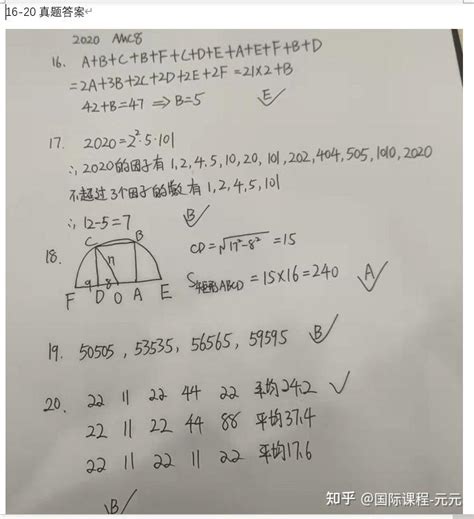 16-20 真题答案
2020 AMC8
16. A+B+C+B+F+C+D+E+A+E+F+B+D
=2A+3B+2C+2D+2E+2F=21×2+B
42+B=47 ⇒ B=5 E
17. 2020=2²·5·101
∴ 2020的因子有 1,2,4,5,10,20,101,202,404,505,1010,2020
不超过3个因子的数有 1,2,4,5,101
∴ 12-5=7 B
18. C B
17 CD=√17²-8² =15
9 8 S矩形ABCD=15×16=240 A
F D O A E
19. 50505, 53535, 56565, 59595 B
20. 22 11 22 44 22 平均24.2
22 11 22 44 88 平均37.4
22 11 22 11 22 平均17.6
B
知乎 @国际课程-元元